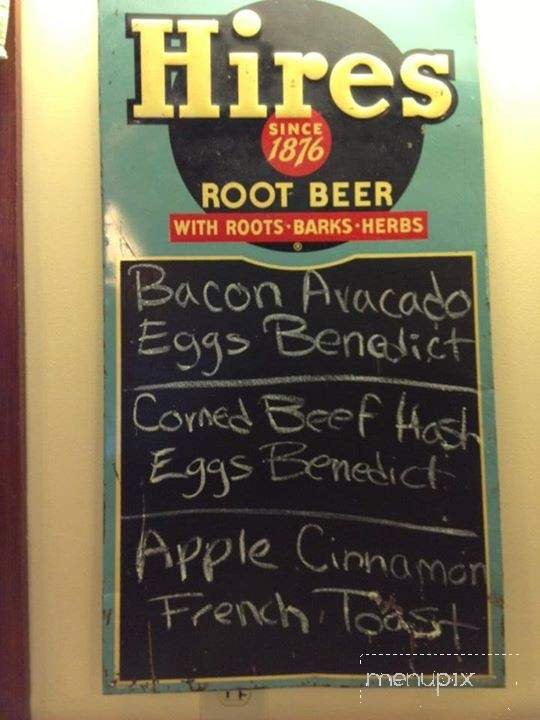 Hires
SINCE
1876
ROOT BEER
WITH ROOTS·BARKS·HERBS
®
Bacon Avacado
Eggs Benedict
Corned Beef Hash
Eggs Benedict
Apple Cinnamon
French Toast
menupix